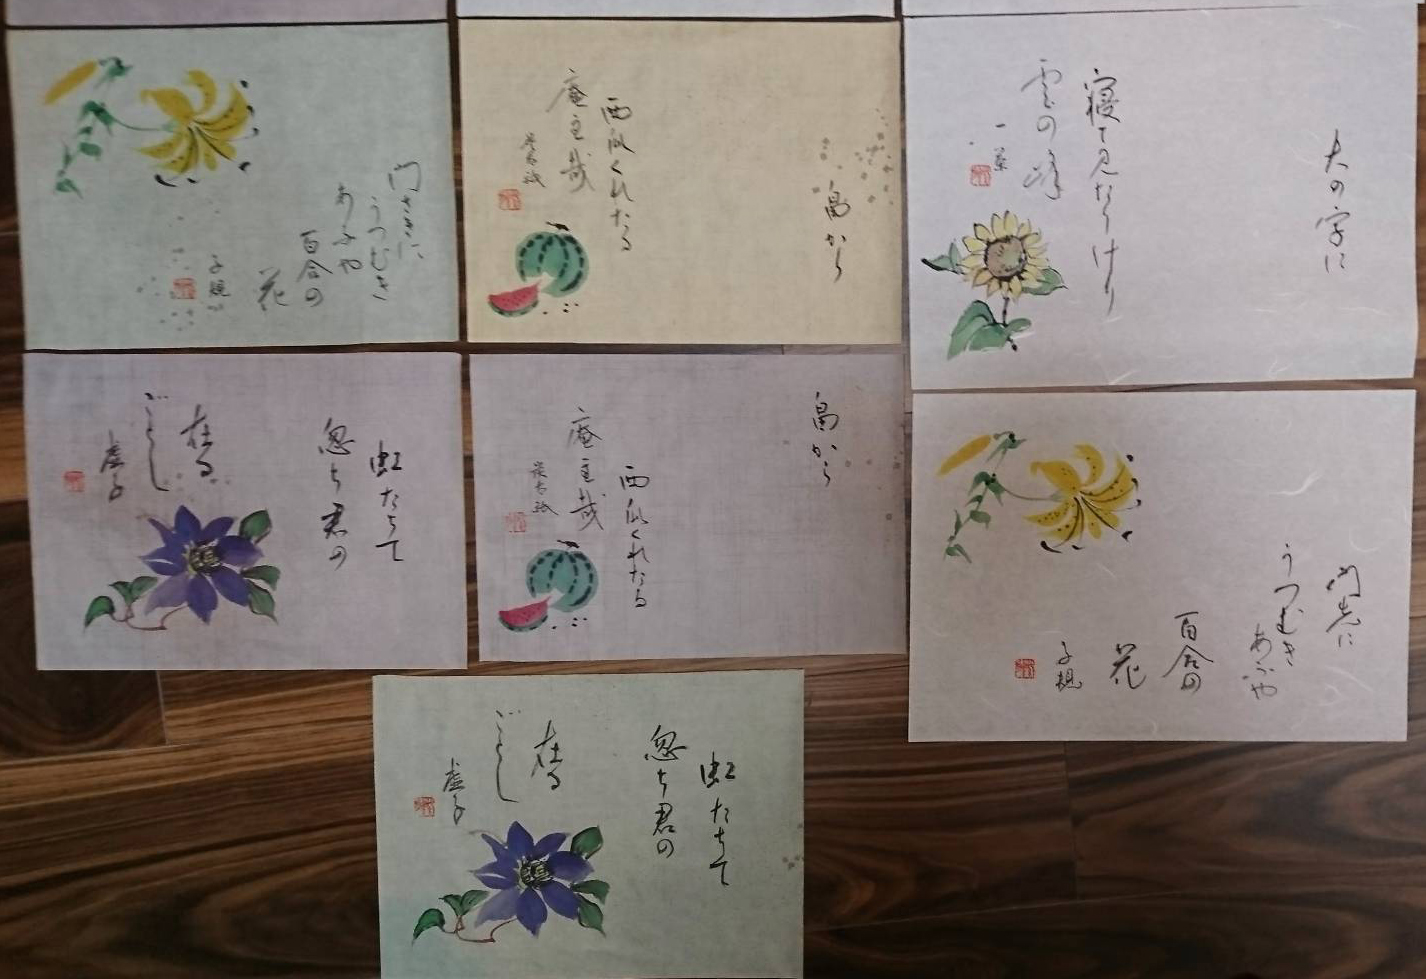 門さきに
うつむき
あふや
百合の
花
子規
畠から
西瓜くれたる
庵主哉
大の字に
寝て見たりけり
雲の峰
一茶
虹たちて
忽ち君の
在る
ごとし
虚子
畠から
西瓜くれたる
庵主哉
門先に
うつむき
あふや
百合の
花
子規
虹たちて
忽ち君の
在る
ごとし
虚子